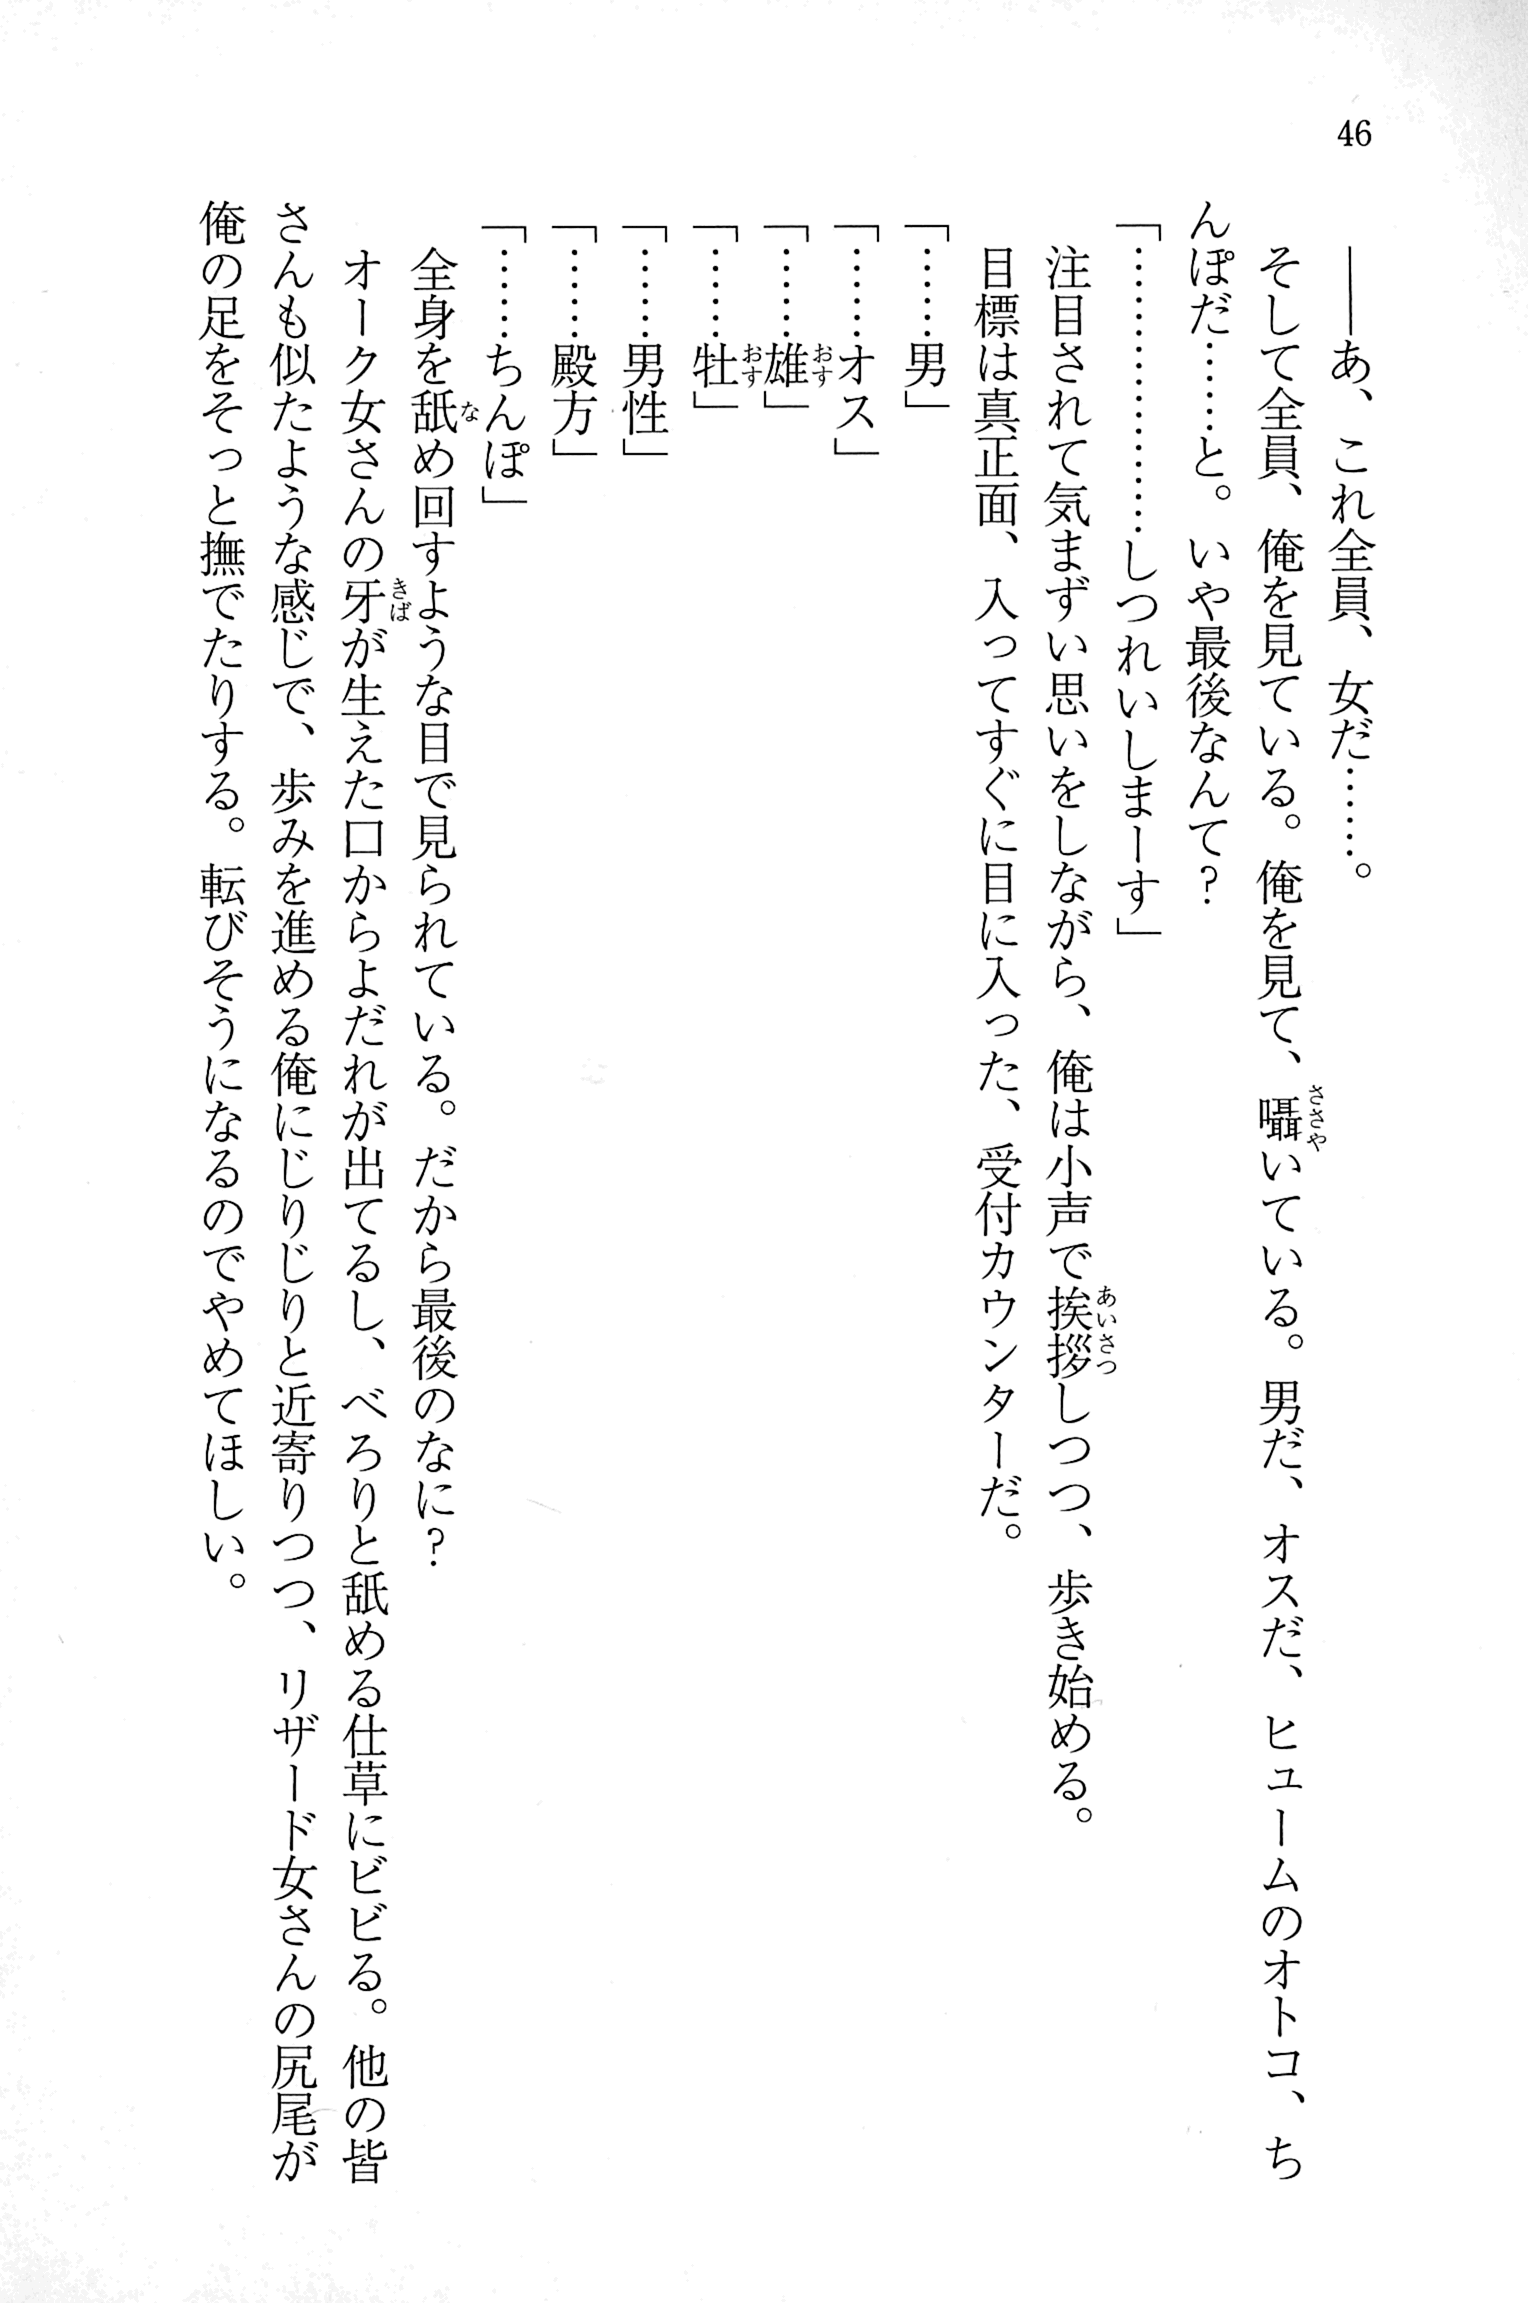 46
――あ、これ全員、女だ……。
そして全員、俺を見ている。俺を見て、囁いている。男だ、オスだ、ヒュームのオトコ、ち
んぽだ……と。いや最後なんて?
「………………しつれいしまーす」
注目されて気まずい思いをしながら、俺は小声で挨拶しつつ、歩き始める。
目標は真正面、入ってすぐに目に入った、受付カウンターだ。
「……男」
「……オス」
「……雄」
「……牡」
「……男性」
「……殿方」
「……ちんぽ」
全身を舐め回すような目で見られている。だから最後のなに?
オーク女さんの牙が生えた口からよだれが出てるし、べろりと舐める仕草にビビる。他の皆
さんも似たような感じで、歩みを進める俺にじりじりと近寄りつつ、リザード女さんの尻尾が
俺の足をそっと撫でたりする。転びそうになるのでやめてほしい。